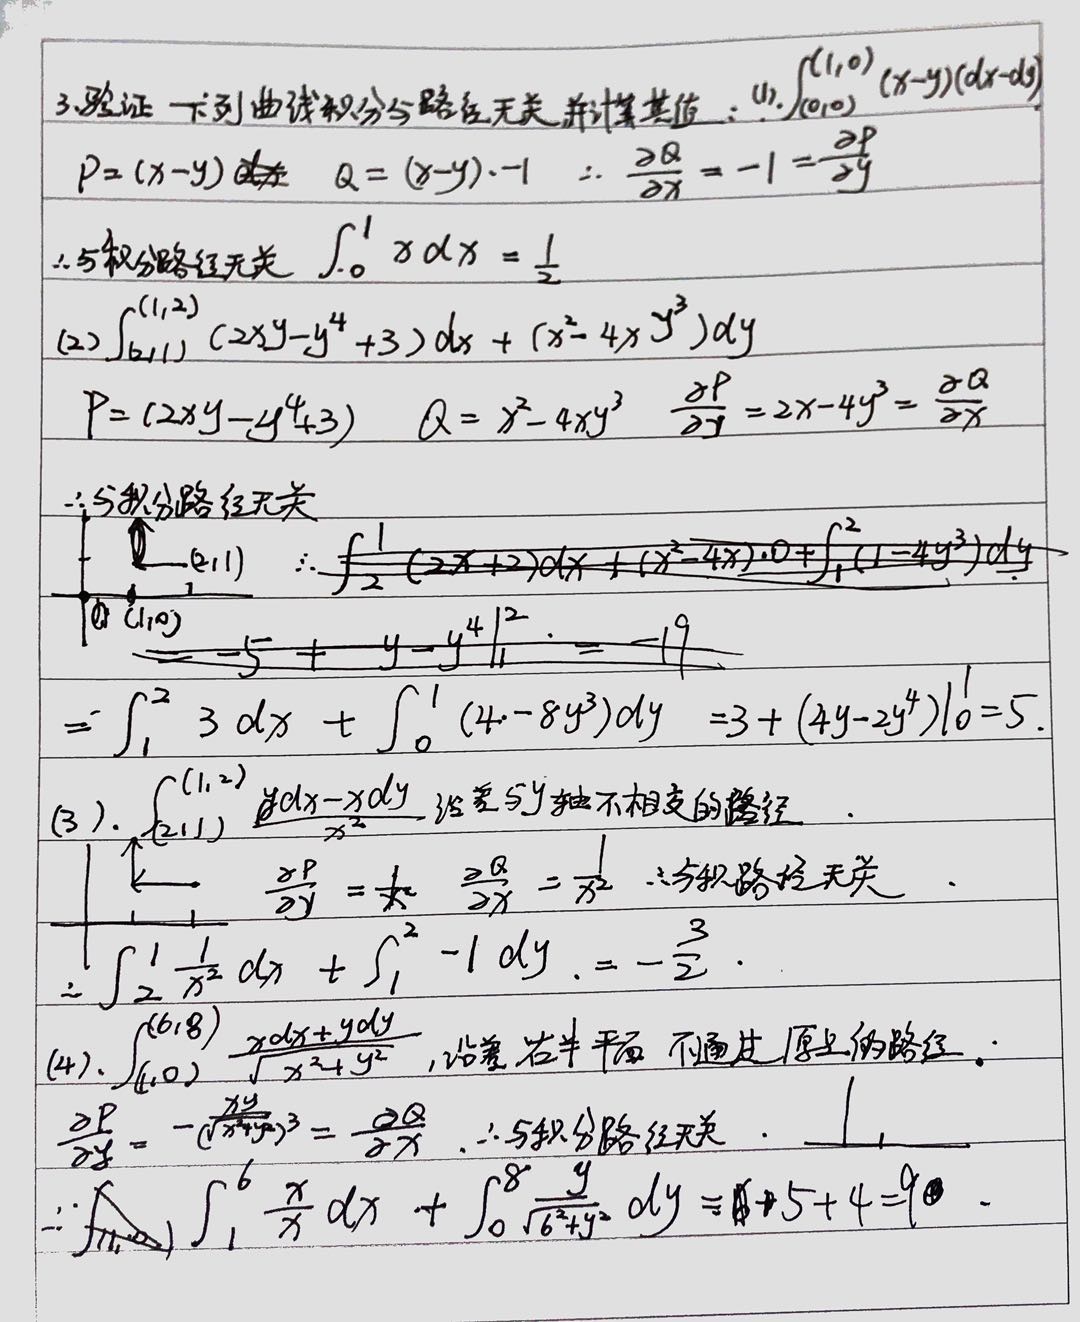 3.验证下列曲线积分与路径无关并计算其值：(1).∫_(0,0)^(1,0) (x-y)(dx-dy)
P=(x-y) Q=(x-y)·-1 ∴ ∂Q/∂x = -1 = ∂P/∂y
∴与积分路径无关 ∫_0^1 x dx = 1/2
(2) ∫_(2,1)^(1,2) (2xy-y^4+3)dx + (x^2-4xy^3)dy
P=(2xy-y^4+3) Q=x^2-4xy^3 ∂P/∂y=2x-4y^3=∂Q/∂x
∴与积分路径无关
(2,1) ∴ ∫_2^1 (2x+2)dx+(x^2-4x)·0+∫_1^2 (1-4y^3)dy
0 (1,0)
= -5 + y-y^4|_1^2 = -19
= ∫_1^2 3 dx + ∫_0^1 (4-8y^3)dy =3+(4y-2y^4)|_0^1=5.
(3). ∫_(2,1)^(1,2) (ydx-xdy)/x^2 沿着与y轴不相交的路径
∂P/∂y = 1/x^2 ∂Q/∂x = 1/x^2 ∴与积路径无关.
∴ ∫_2^1 1/x^2 dx + ∫_1^2 -1 dy = -3/2.
(4). ∫_(1,0)^(6,8) (xdx+ydy)/√(x^2+y^2), 沿着右半平面不通过原点的路径.
∂P/∂y = -xy/(√(x^2+y^2))^3 = ∂Q/∂x ∴与积分路径无关.
∴ ∫_1^6 x/x dx + ∫_0^8 y/√(6^2+y^2) dy = 5+4=9.